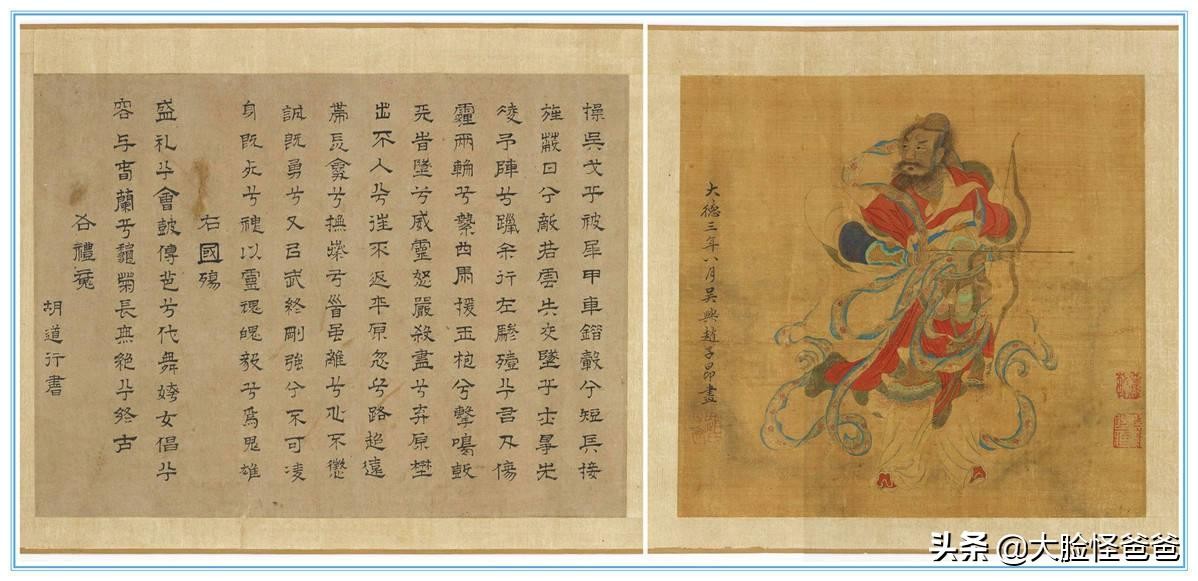 操吳戈兮被犀甲車錯轂兮短兵接
旌蔽日兮敵若雲矢交墜兮士爭先
凌予陣兮躐余行左驂殪兮右刃傷
霾兩輪兮縶四馬援玉枹兮擊鳴鼓
天旹墜兮威靈怒嚴殺盡兮弃原壄
出不入兮往不返平原忽兮路超遠
帶長劍兮挾秦弓首雖離兮心不懲
誠既勇兮又以武終剛強兮不可凌
身既死兮神以靈魂魄毅兮為鬼雄
右國殤
盛礼兮會鼓傳芭兮代舞姱女倡兮
容与旾蘭兮秋菊長無絕兮終古
右禮魂
胡道行書
大德三年八月吳興趙子昂畫
头条 @大脸怪爸爸